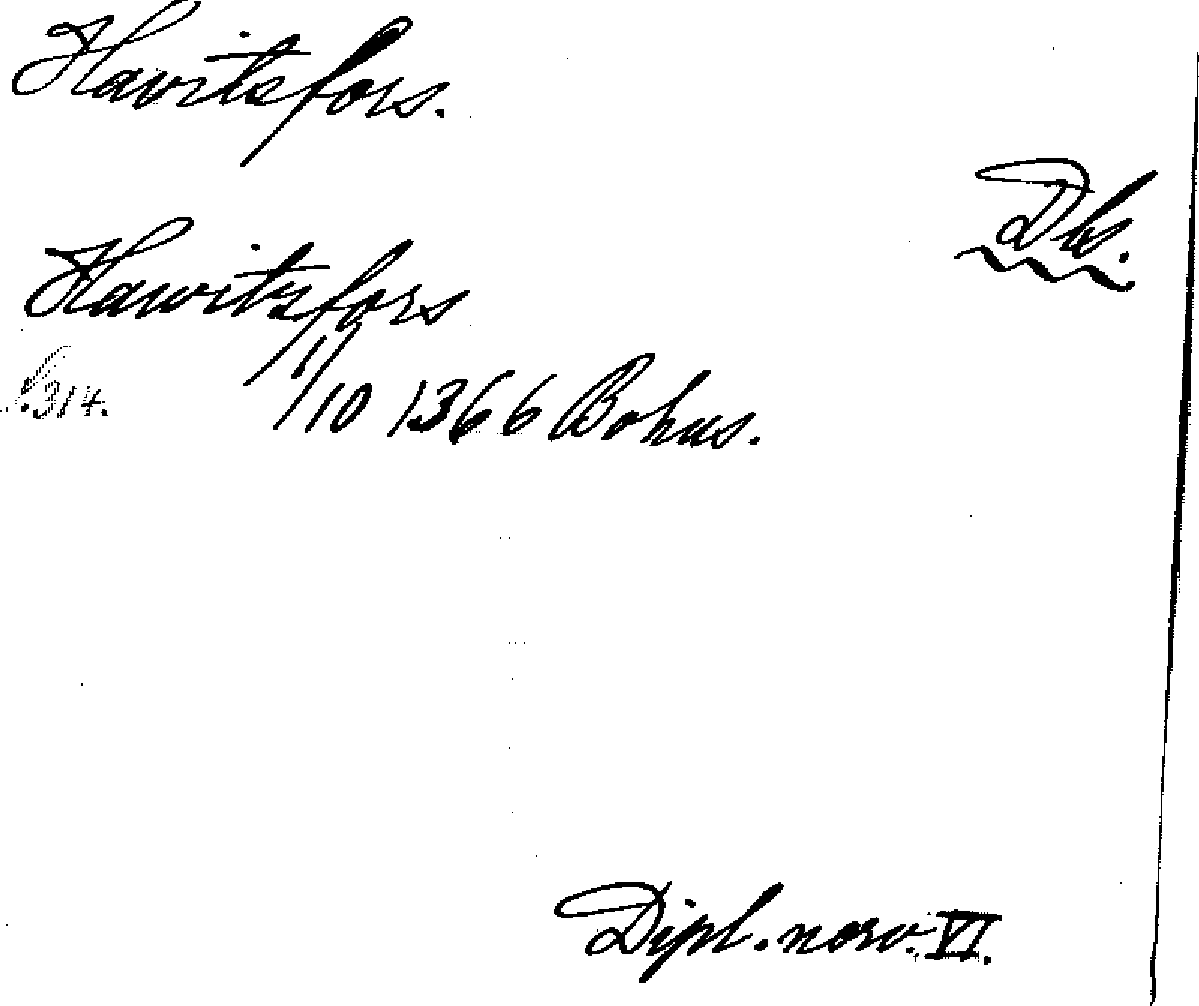 Havitsfors.
Dls.
Hawitzfors
s. 314. 17/10 1366 Bohus.
Dipl. norv. VI.